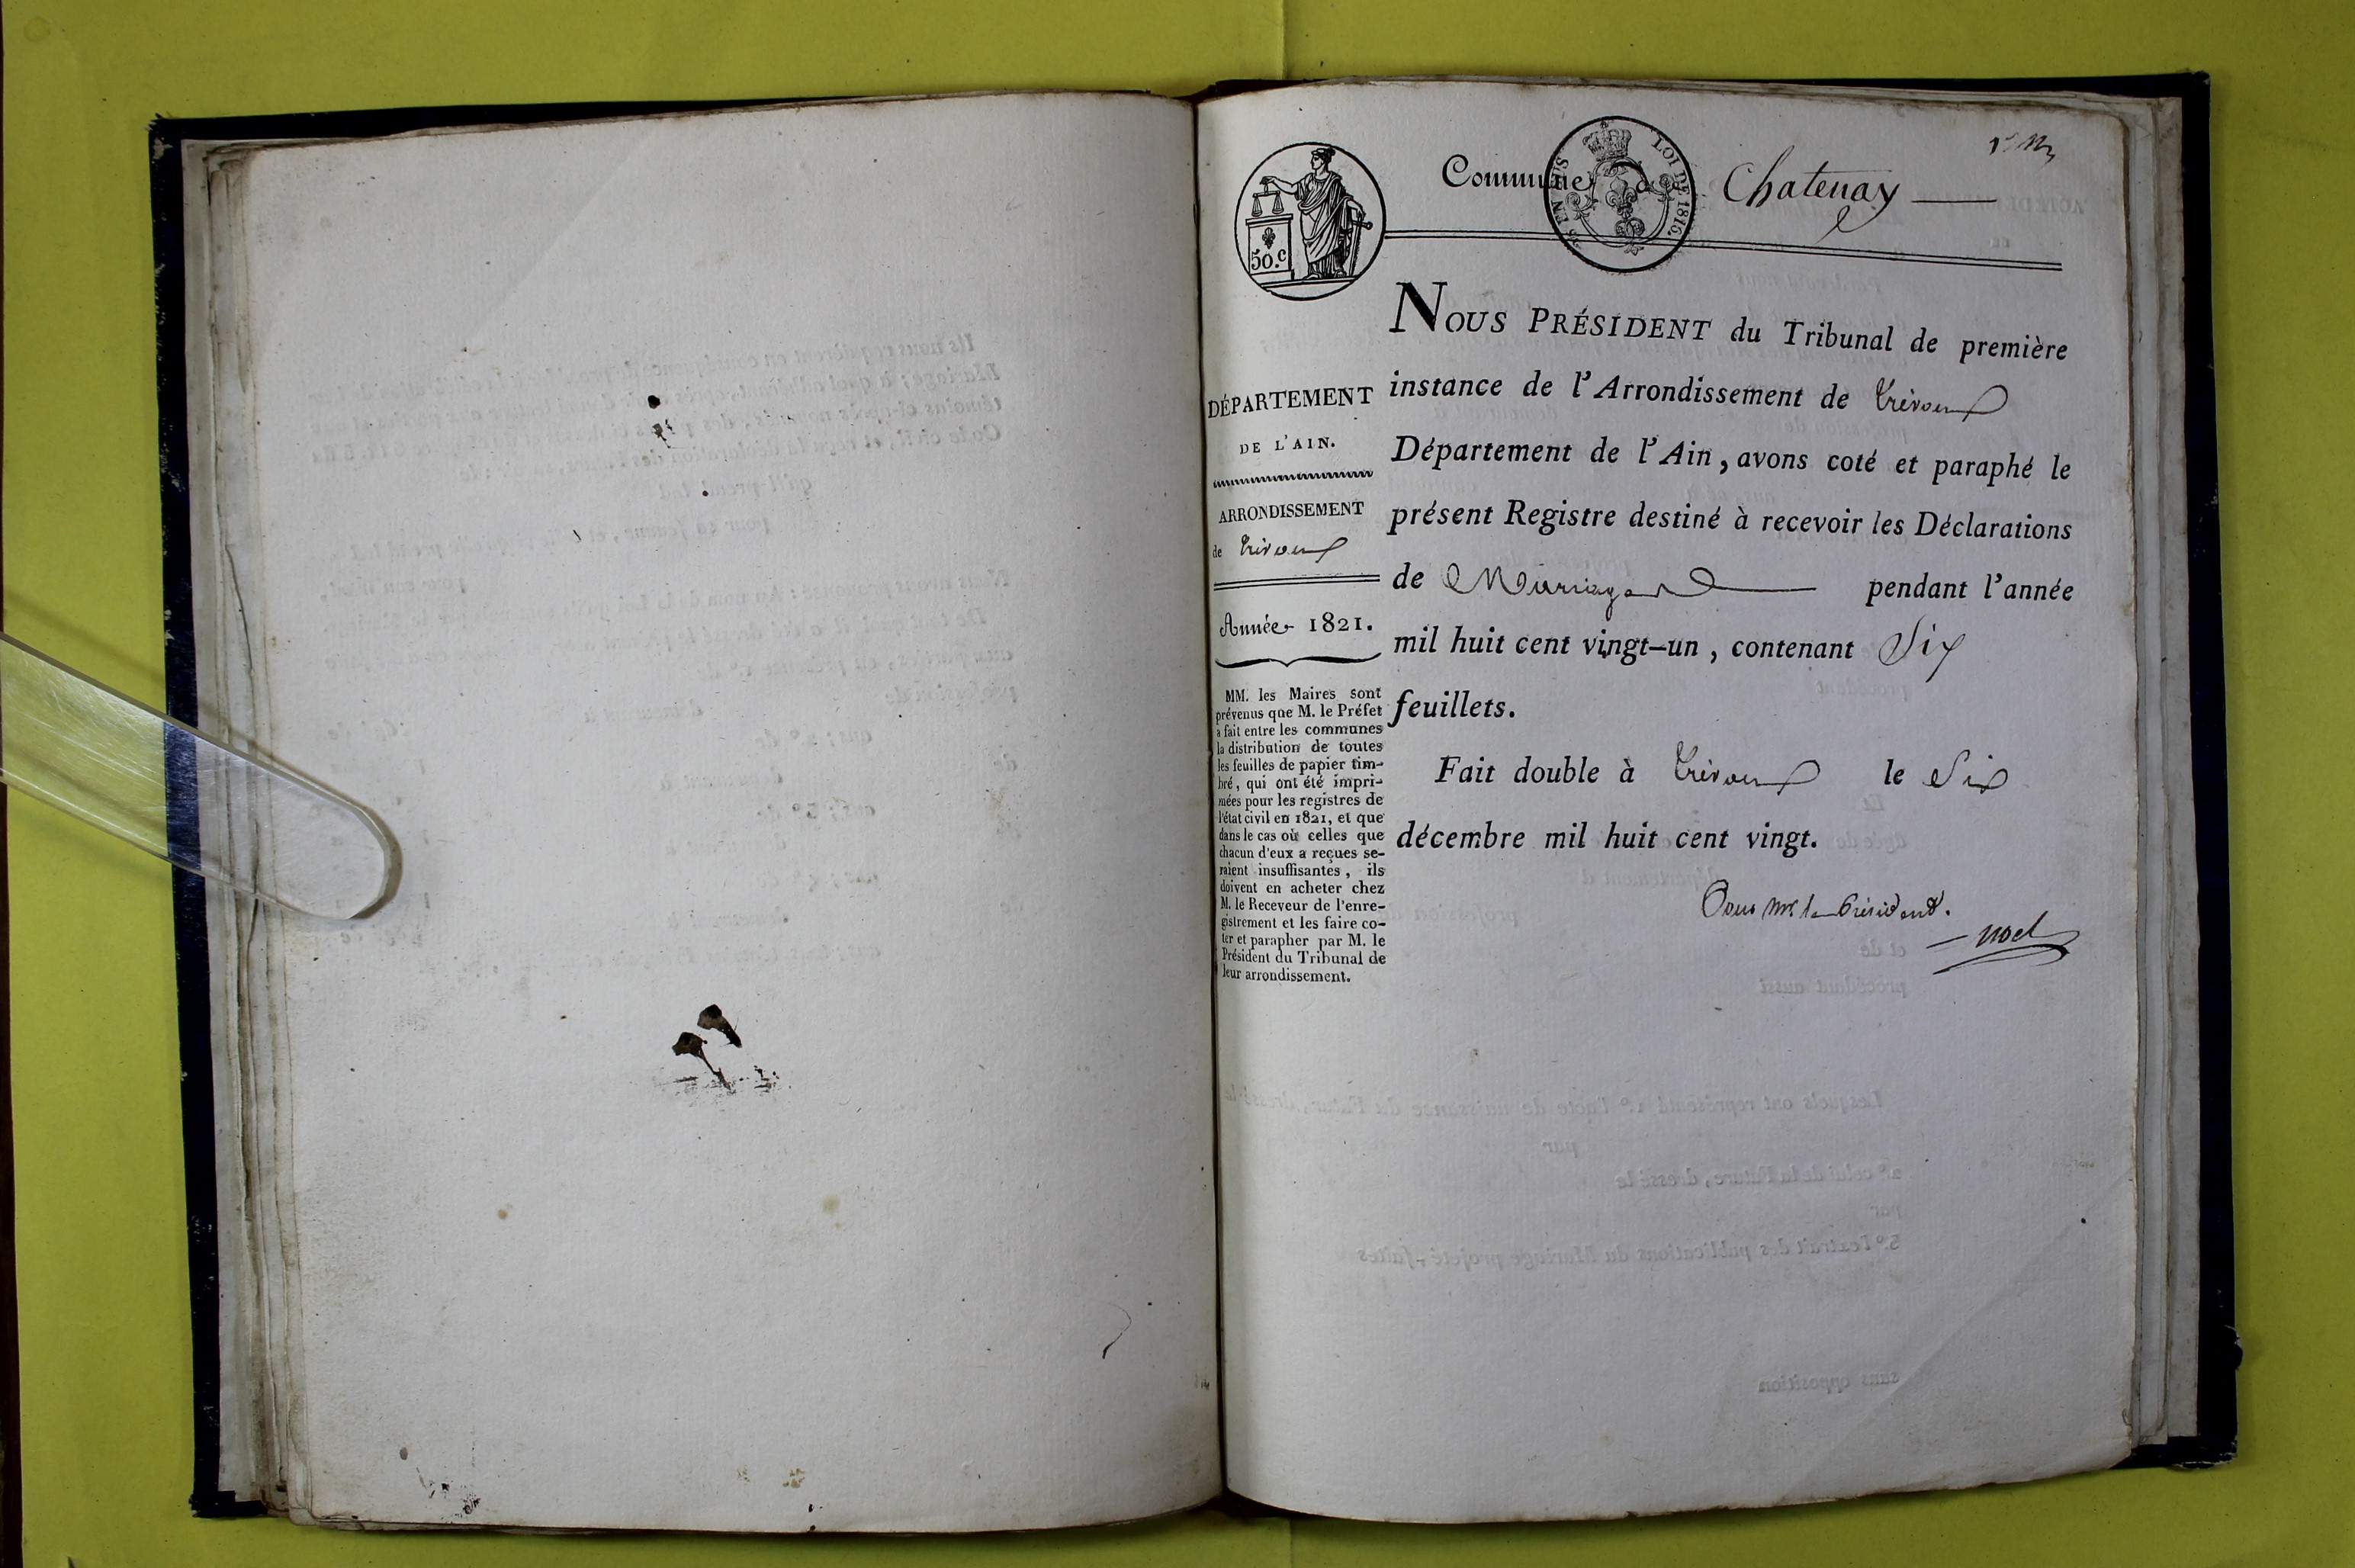 Commune de Chatenay
LOI DE 1815.
EN SUS
50.c
NOUS PRÉSIDENT du Tribunal de première
instance de l'Arrondissement de Trévoux
Département de l'Ain, avons coté et paraphé le
présent Registre destiné à recevoir les Déclarations
de Mariages pendant l'année
mil huit cent vingt-un, contenant Six
feuillets.
Fait double à Trévoux le Six
décembre mil huit cent vingt.
Pour Mr le Président.
Noel
DÉPARTEMENT
DE L'AIN.
ARRONDISSEMENT
de Trévoux
Année 1821.
MM. les Maires sont
prévenus que M. le Préfet
a fait entre les communes
la distribution de toutes
les feuilles de papier tim-
bré, qui ont été impri-
mées pour les registres de
l'état civil en 1821, et que
dans le cas où celles que
chacun d'eux a reçues se-
raient insuffisantes, ils
doivent en acheter chez
M. le Receveur de l'enre-
gistrement et les faire co-
ter et parapher par M. le
Président du Tribunal de
leur arrondissement.